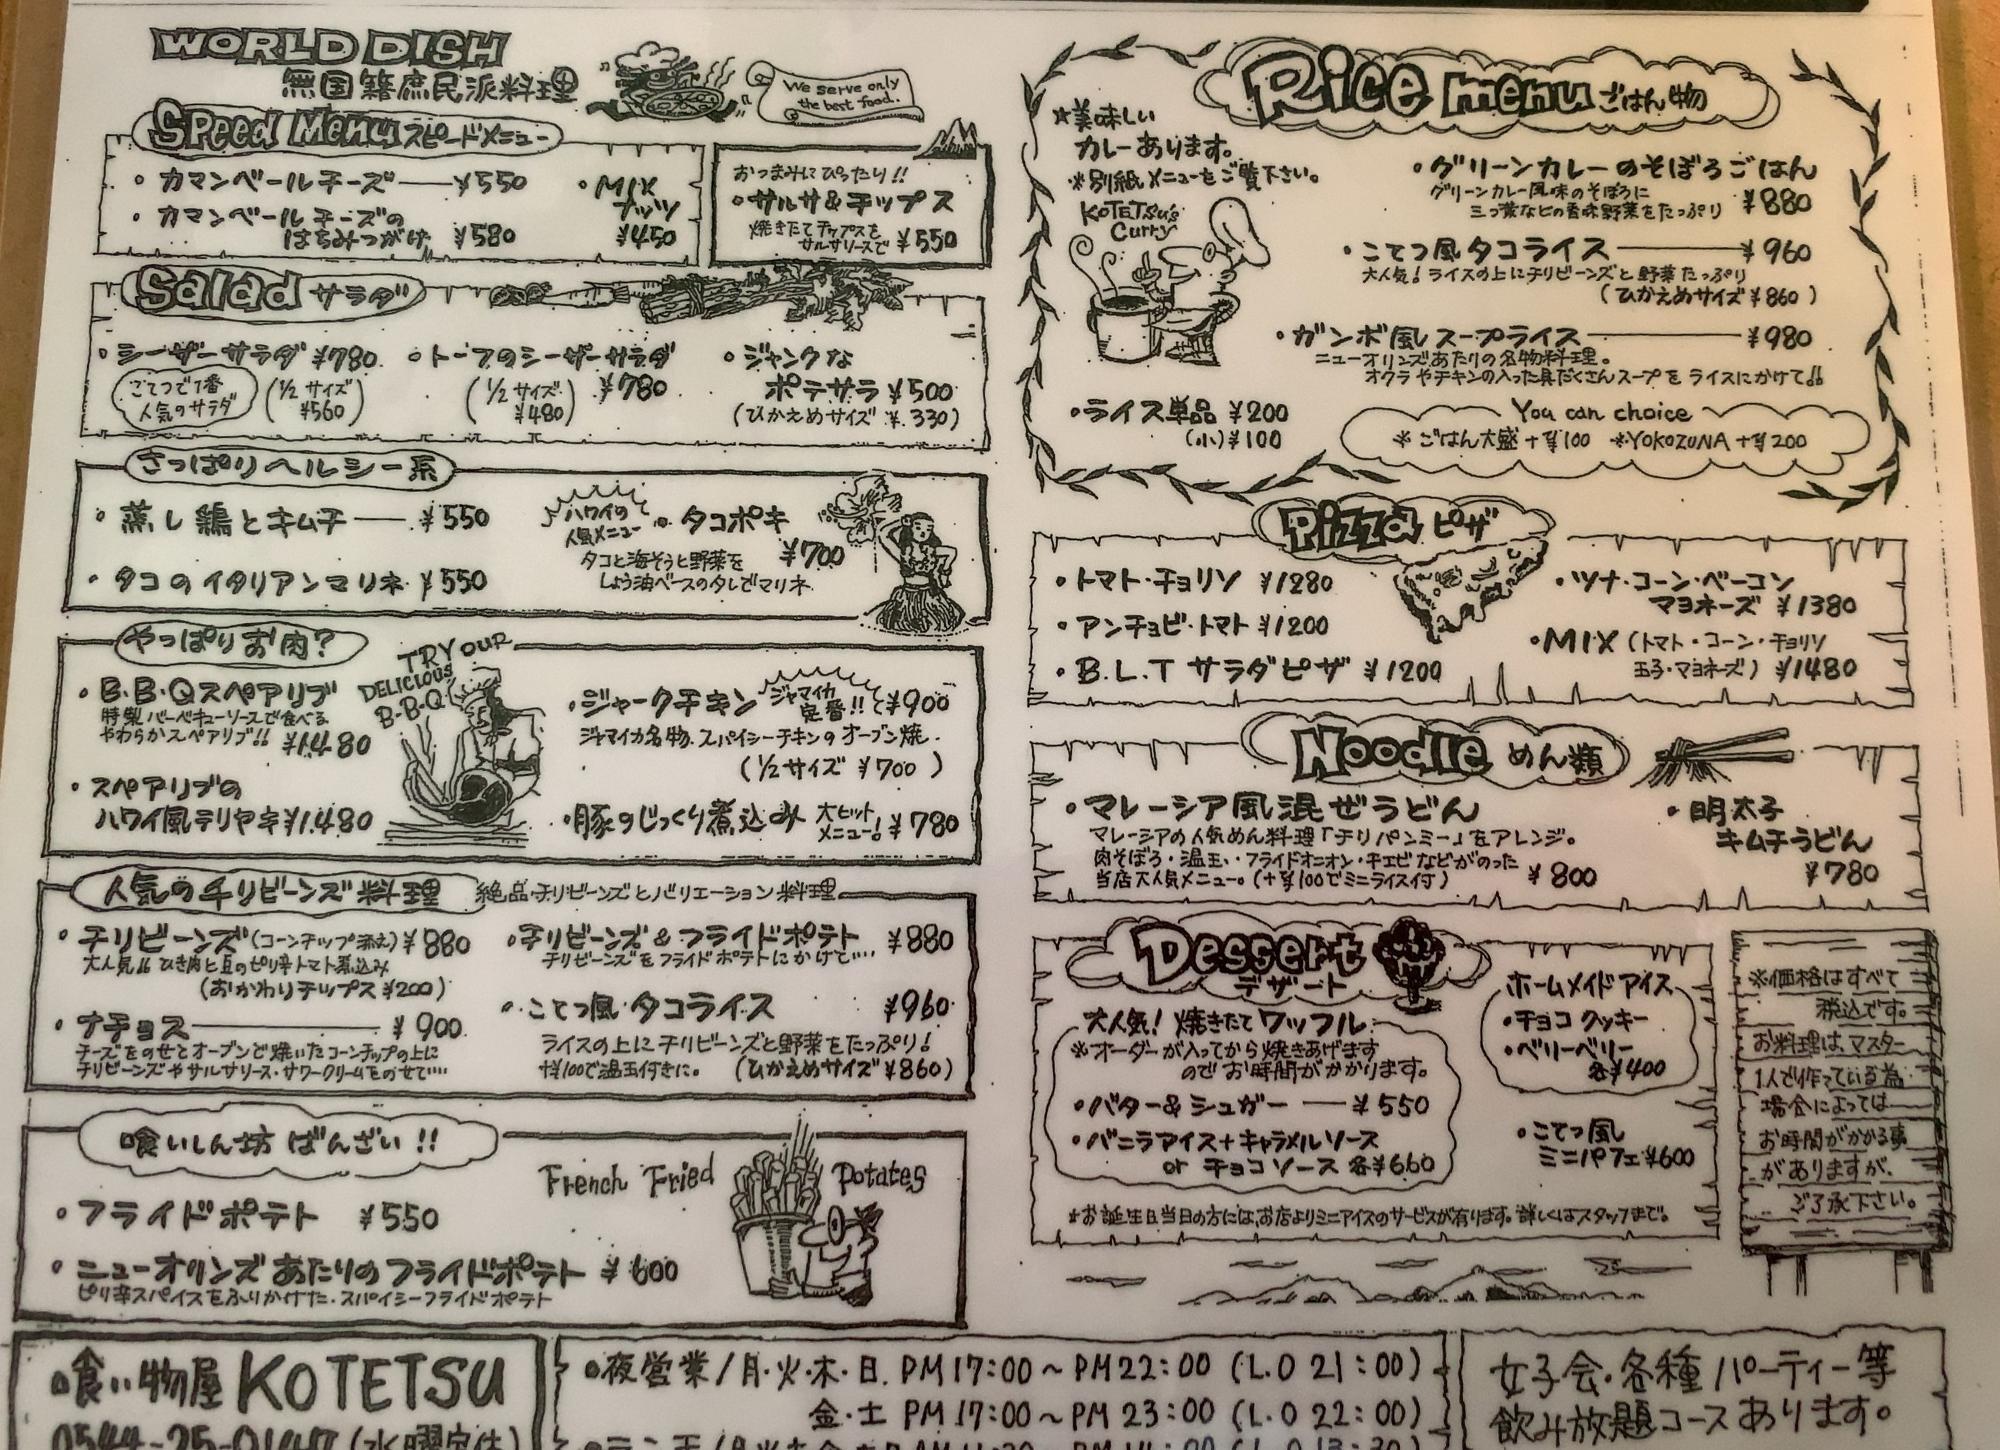 WORLD DISH
無国籍庶民派料理
We serve only
the best food.
Speed Menu スピードメニュー
・カマンベールチーズ ¥550
・カマンベールチーズの
はちみつがけ ¥580
・MIX
ナッツ
¥450
おつまみにぴったり!!
・サルサ&チップス
焼きたてチップスを
サルサソースで ¥550
Salad サラダ
・シーザーサラダ ¥780
こてつで1番
人気のサラダ
(1/2 サイズ
¥560)
・トーフのシーザーサラダ
¥780
(1/2 サイズ
¥480)
・ジャンクな
ポテサラ ¥500
(ひかえめサイズ ¥330)
さっぱりヘルシー系
・蒸し鶏とキムチ ¥550
・タコのイタリアンマリネ ¥550
ハワイの
人気メニュー
・タコポキ
¥700
タコと海そうと野菜を
しょう油ベースのタレでマリネ
やっぱりお肉?
・B・B・Qスペアリブ
特製バーベキューソースで食べる
やわらかスペアリブ!! ¥1480
・スペアリブの
ハワイ風テリヤキ ¥1480
TRY OUR
DELICIOUS
B-B-Q
・ジャークチキン ジャマイカ
定番!! ¥900
ジャマイカ名物.スパイシーチキンのオーブン焼.
(1/2サイズ ¥700 )
・豚のじっくり煮込み 大ヒット
メニュー! ¥780
人気のチリビーンズ料理 絶品・チリビーンズとバリエーション料理
・チリビーンズ(コーンチップ添え) ¥880
大人気!! ひき肉と豆のピリ辛トマト煮込み
(おかわりチップス ¥200)
・ナチョス ¥900
チーズをのせてオーブンで焼いたコーンチップの上に
チリビーンズやサルサソース・サワークリームをのせて····
・チリビーンズ&フライドポテト ¥880
チリビーンズをフライドポテトにかけて····
・こてつ風・タコライス ¥960
ライスの上にチリビーンズと野菜をたっぷり!
+¥100で温玉付きに。 (ひかえめサイズ ¥860)
喰いしん坊 ばんざい!!
・フライドポテト ¥550
・ニューオリンズあたりのフライドポテト ¥600
ピリ辛スパイスをふりかけた・スパイシーフライドポテト
French Fried Potates
Rice menu ごはん物
☆美味しい
カレーあります。
※別紙メニューをご覧下さい。
KOTETSU's
Curry
・グリーンカレーのそぼろごはん
グリーンカレー風味のそぼろに
三つ葉などの香味野菜をたっぷり ¥880
・こてつ風タコライス ¥960
大人気!ライスの上にチリビーンズと野菜たっぷり
(ひかえめサイズ ¥860 )
・ガンボ風スープライス ¥980
ニューオリンズあたりの名物料理。
オクラやチキンの入った具だくさんスープをライスにかけて!!
・ライス単品 ¥200
(小)¥100
You can choice
※ごはん大盛+¥100 ※YOKOZUNA+¥200
Pizza ピザ
・トマト・チョリソ ¥1280
・アンチョビ・トマト ¥1200
・B.L.T サラダピザ ¥1200
・ツナ・コーン・ベーコン
マヨネーズ ¥1380
・MIX (トマト・コーン・チョリソ
玉子・マヨネーズ) ¥1480
Noodle めん類
・マレーシア風混ぜうどん
マレーシアの人気めん料理「チリパンミー」をアレンジ。
肉そぼろ・温玉・フライドオニオン・干エビなどがのった
当店大人気メニュー。(+¥100でミニライス付) ¥800
・明太子
キムチうどん
¥780
Dessert
デザート
大人気!焼きたてワッフル
※オーダーが入ってから焼きあげます
のでお時間がかかります。
・バター&シュガー ¥550
・バニラアイス+キャラメルソース
or チョコソース 各¥660
ホームメイドアイス
・チョコクッキー
・ベリーベリー
各¥400
・こてつ風
ミニパフェ ¥600
*お誕生日当日の方には、お店よりミニアイスのサービスが有ります。詳しくはスタッフまで。
※価格はすべて
税込です。
お料理は、マスター
1人で作っている為
場合によっては
お時間がかかる事
がありますが、
ご了承下さい。
喰い物屋 KOTETSU
0544-25-0147 (水曜定休)
●夜営業/月・火・木・日. PM 17:00~PM 22:00 (L.O 21:00)
金・土 PM 17:00~PM 23:00 (L.O 22:00)
女子会・各種パーティー等
飲み放題コースあります。